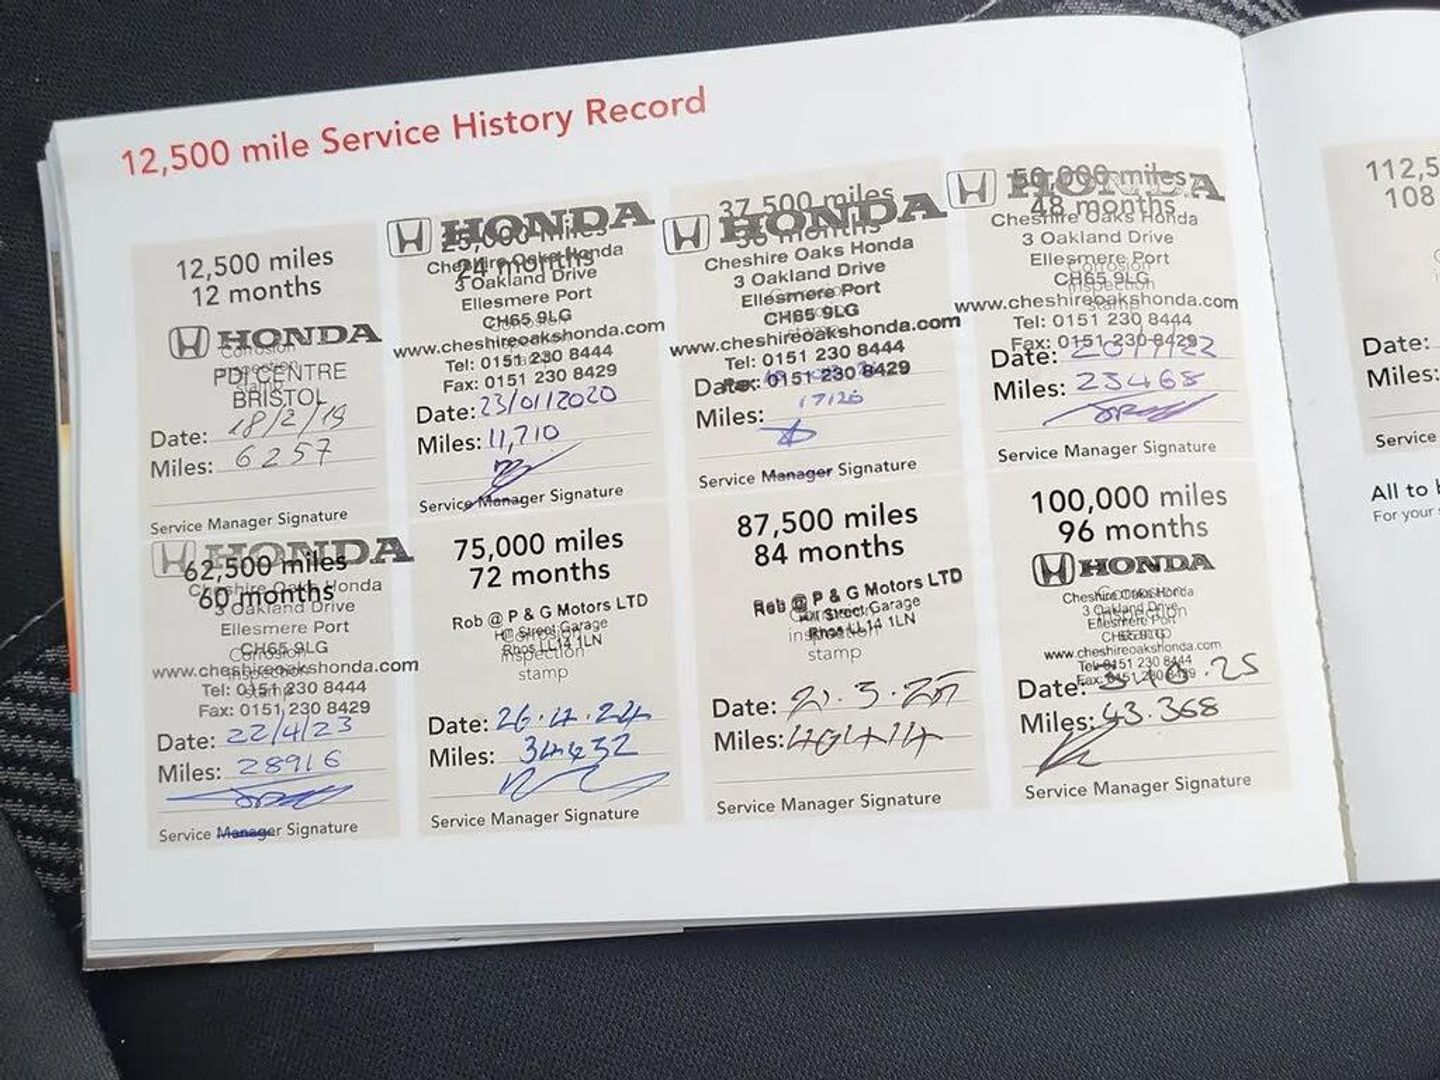 12,500 mile Service History Record
12,500 miles
12 months
HONDA
Corrosion
inspection
stamp
PDI CENTRE
BRISTOL
Date: 18/2/19
Miles: 6257
Service Manager Signature
25,000 miles
24 months
HONDA
Cheshire Oaks Honda
3 Oakland Drive
Ellesmere Port
CH65 9LG
www.cheshireoakshonda.com
Tel: 0151 230 8444
Fax: 0151 230 8429
Date: 23/01/2020
Miles: 11,710
Service Manager Signature
37,500 miles
36 months
HONDA
Cheshire Oaks Honda
3 Oakland Drive
Ellesmere Port
CH65 9LG
www.cheshireoakshonda.com
Tel: 0151 230 8444
Fax: 0151 230 8429
Date:
Miles: 17126
Service Manager Signature
50,000 miles
48 months
HONDA
Cheshire Oaks Honda
3 Oakland Drive
Ellesmere Port
CH65 9LG
Corrosion
inspection
stamp
www.cheshireoakshonda.com
Tel: 0151 230 8444
Fax: 0151 230 8429
Date:
Miles: 23468
Service Manager Signature
62,500 miles
60 months
HONDA
Cheshire Oaks Honda
3 Oakland Drive
Ellesmere Port
CH65 9LG
Corrosion
inspection
stamp
www.cheshireoakshonda.com
Tel: 0151 230 8444
Fax: 0151 230 8429
Date: 22/4/23
Miles: 28916
Service Manager Signature
75,000 miles
72 months
Rob @ P & G Motors LTD
Hill Street Garage
Rhos LL14 1LN
Corrosion
inspection
stamp
Date: 26.4.24
Miles: 34432
Service Manager Signature
87,500 miles
84 months
Rob @ P & G Motors LTD
Hill Street Garage
Rhos LL14 1LN
Corrosion
inspection
stamp
Date: 21.3.25
Miles: 40414
Service Manager Signature
100,000 miles
96 months
HONDA
Cheshire Oaks Honda
3 Oakland Drive
Ellesmere Port
CH65 9LG
Corrosion
inspection
stamp
www.cheshireoakshonda.com
Tel: 0151 230 8444
Fax: 0151 230 8429
Date:
Miles: 43.368
Service Manager Signature
112,5
108
Date:
Miles:
Service
All to
For your